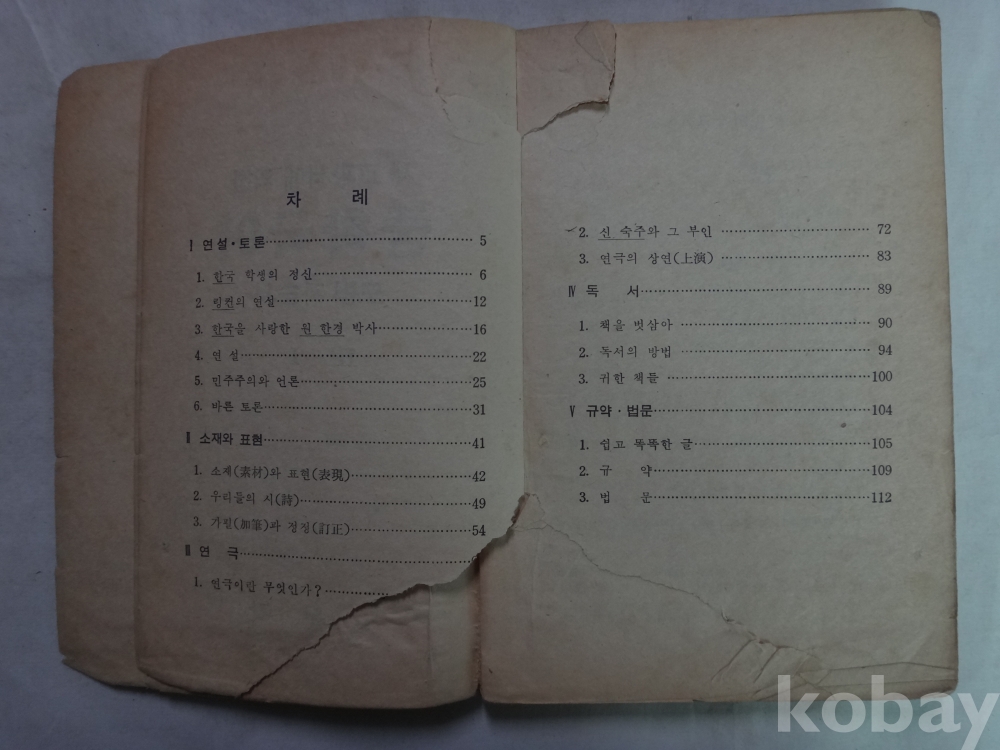 차 례
Ⅰ 연설·토론 5
1. 한국 학생의 정신 6
2. 링컨의 연설 12
3. 한국을 사랑한 원 한경 박사 16
4. 연 설 22
5. 민주주의와 언론 25
6. 바른 토론 31
Ⅱ 소재와 표현 41
1. 소재(素材)와 표현(表現) 42
2. 우리들의 시(詩) 49
3. 가필(加筆)과 정정(訂正) 54
Ⅲ 연 극
1. 연극이란 무엇인가?
2. 신 숙주와 그 부인 72
3. 연극의 상연(上演) 83
Ⅳ 독 서 89
1. 책을 벗삼아 90
2. 독서의 방법 94
3. 귀한 책들 100
Ⅴ 규약·법문 104
1. 쉽고 똑똑한 글 105
2. 규 약 109
3. 법 문 112
kobay